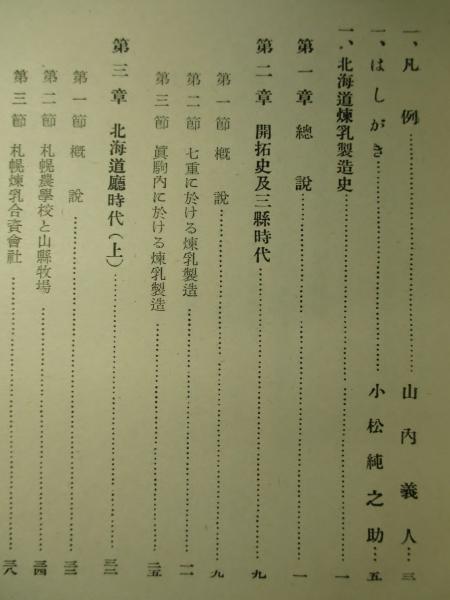 一、凡例……山內義人…三
一、はしがき……小松純之助…五
一、北海道煉乳製造史……一
第一章 總說……一
第二章 開拓史及三縣時代……九
第一節 概說……九
第二節 七重に於ける煉乳製造……一一
第三節 眞駒內に於ける煉乳製造……二五
第三章 北海道廳時代(上)……三二
第一節 概說……三二
第二節 札幌農學校と山縣牧場……三四
第三節 札幌煉乳合資會社……三八